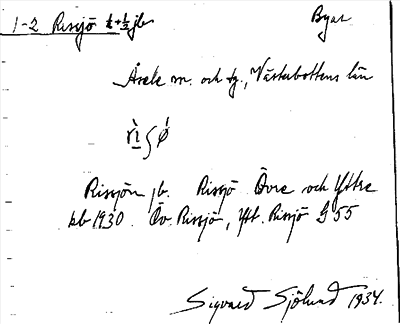 1-2 Rissjö ½+½ jb. Byar
Åsele sn. och tg., Västerbottens län
rìʃǿ
Rissjön jb. Rissjö Övre och Yttre
kb 1930 Öv. Rissjö, Ytt. Rissjö G 55
Sigvard Sjölund 1934.